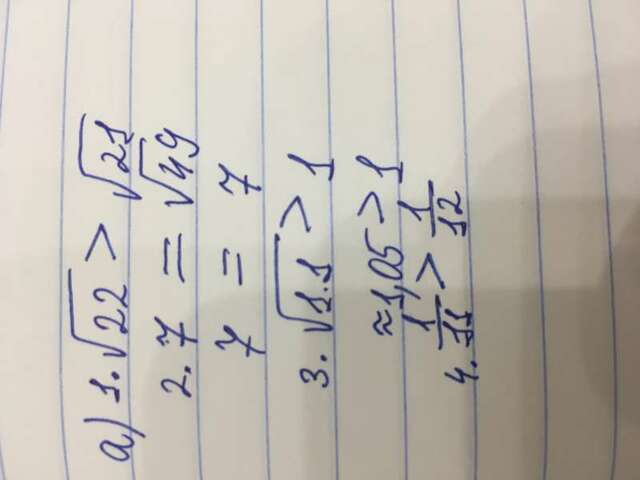 а) 1. √22 > √21
2. 7 = √49
7 = 7
3. √1.1 > 1
≈1,05 > 1
4. 1/11 > 1/12